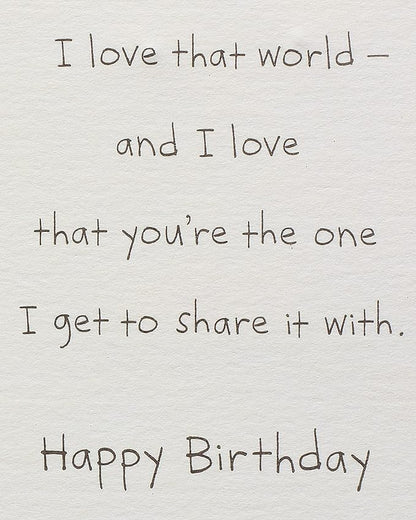 I love that world –
and I love
that you're the one
I get to share it with.
Happy Birthday